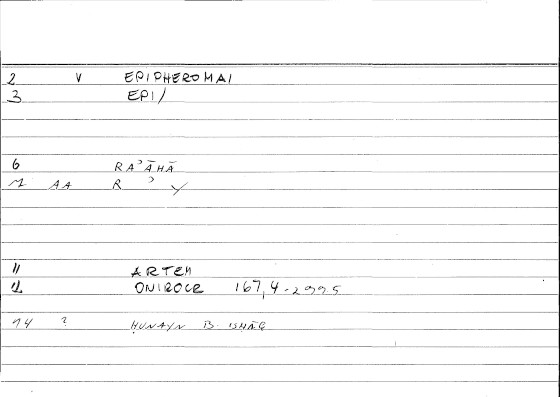 2 V EPIPHEROMAI
3 EPI/
6 RAʾĀHĀ
7 AA R ʾ Y
11 ARTEM
12 ONIROCR 167,4-299.5
14 ? ḤUNAYN B. ISḤĀQ